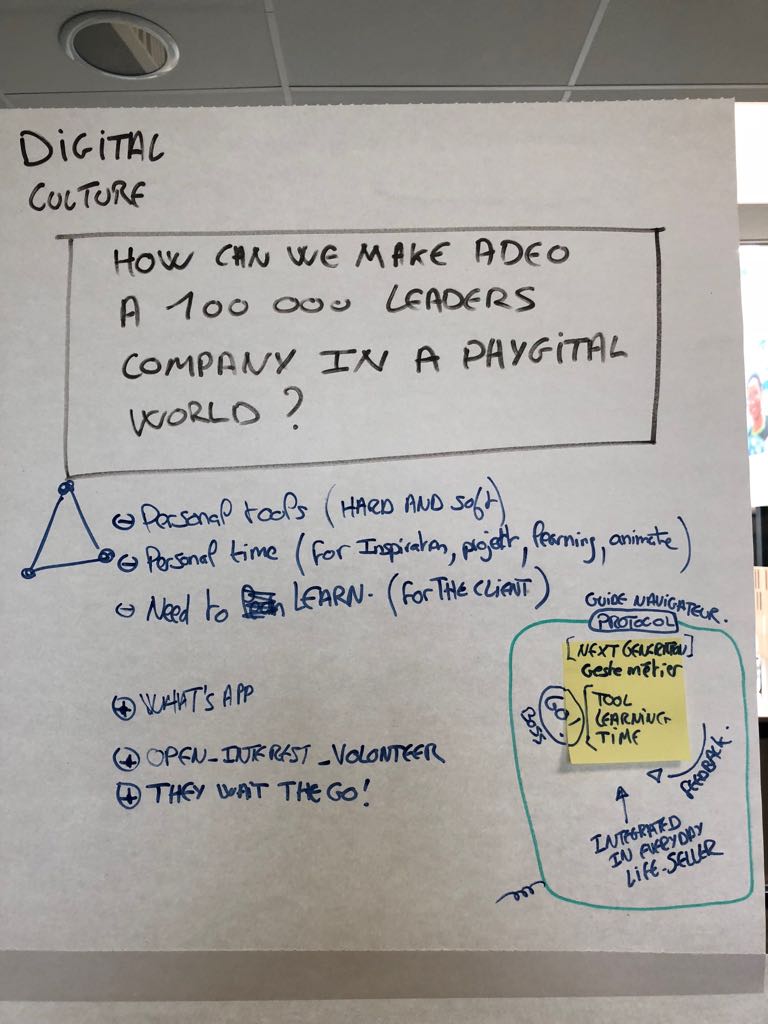 DIGITAL
CULTURE
HOW CAN WE MAKE ADEO
A 100 000 LEADERS
COMPANY IN A PHYGITAL
WORLD ?
⊖ Personal tools (HARD AND Soft)
⊖ Personal time (for Inspiration, projett, learning, animate)
⊖ Need to LEARN. (for THE CLIENT)
⊕ WHAT'S APP
⊕ OPEN_INTEREST_VOLONTEER
⊕ THEY WAIT THE GO!
GUIDE NAVIGATEUR.
PROTOCOL
[NEXT GENERATION]
Geste métier
BOSS
GO!
TOOL
LEARNING
TIME
FEEDBACK.
INTEGRATED
IN EVERYDAY
LIFE-SELLER